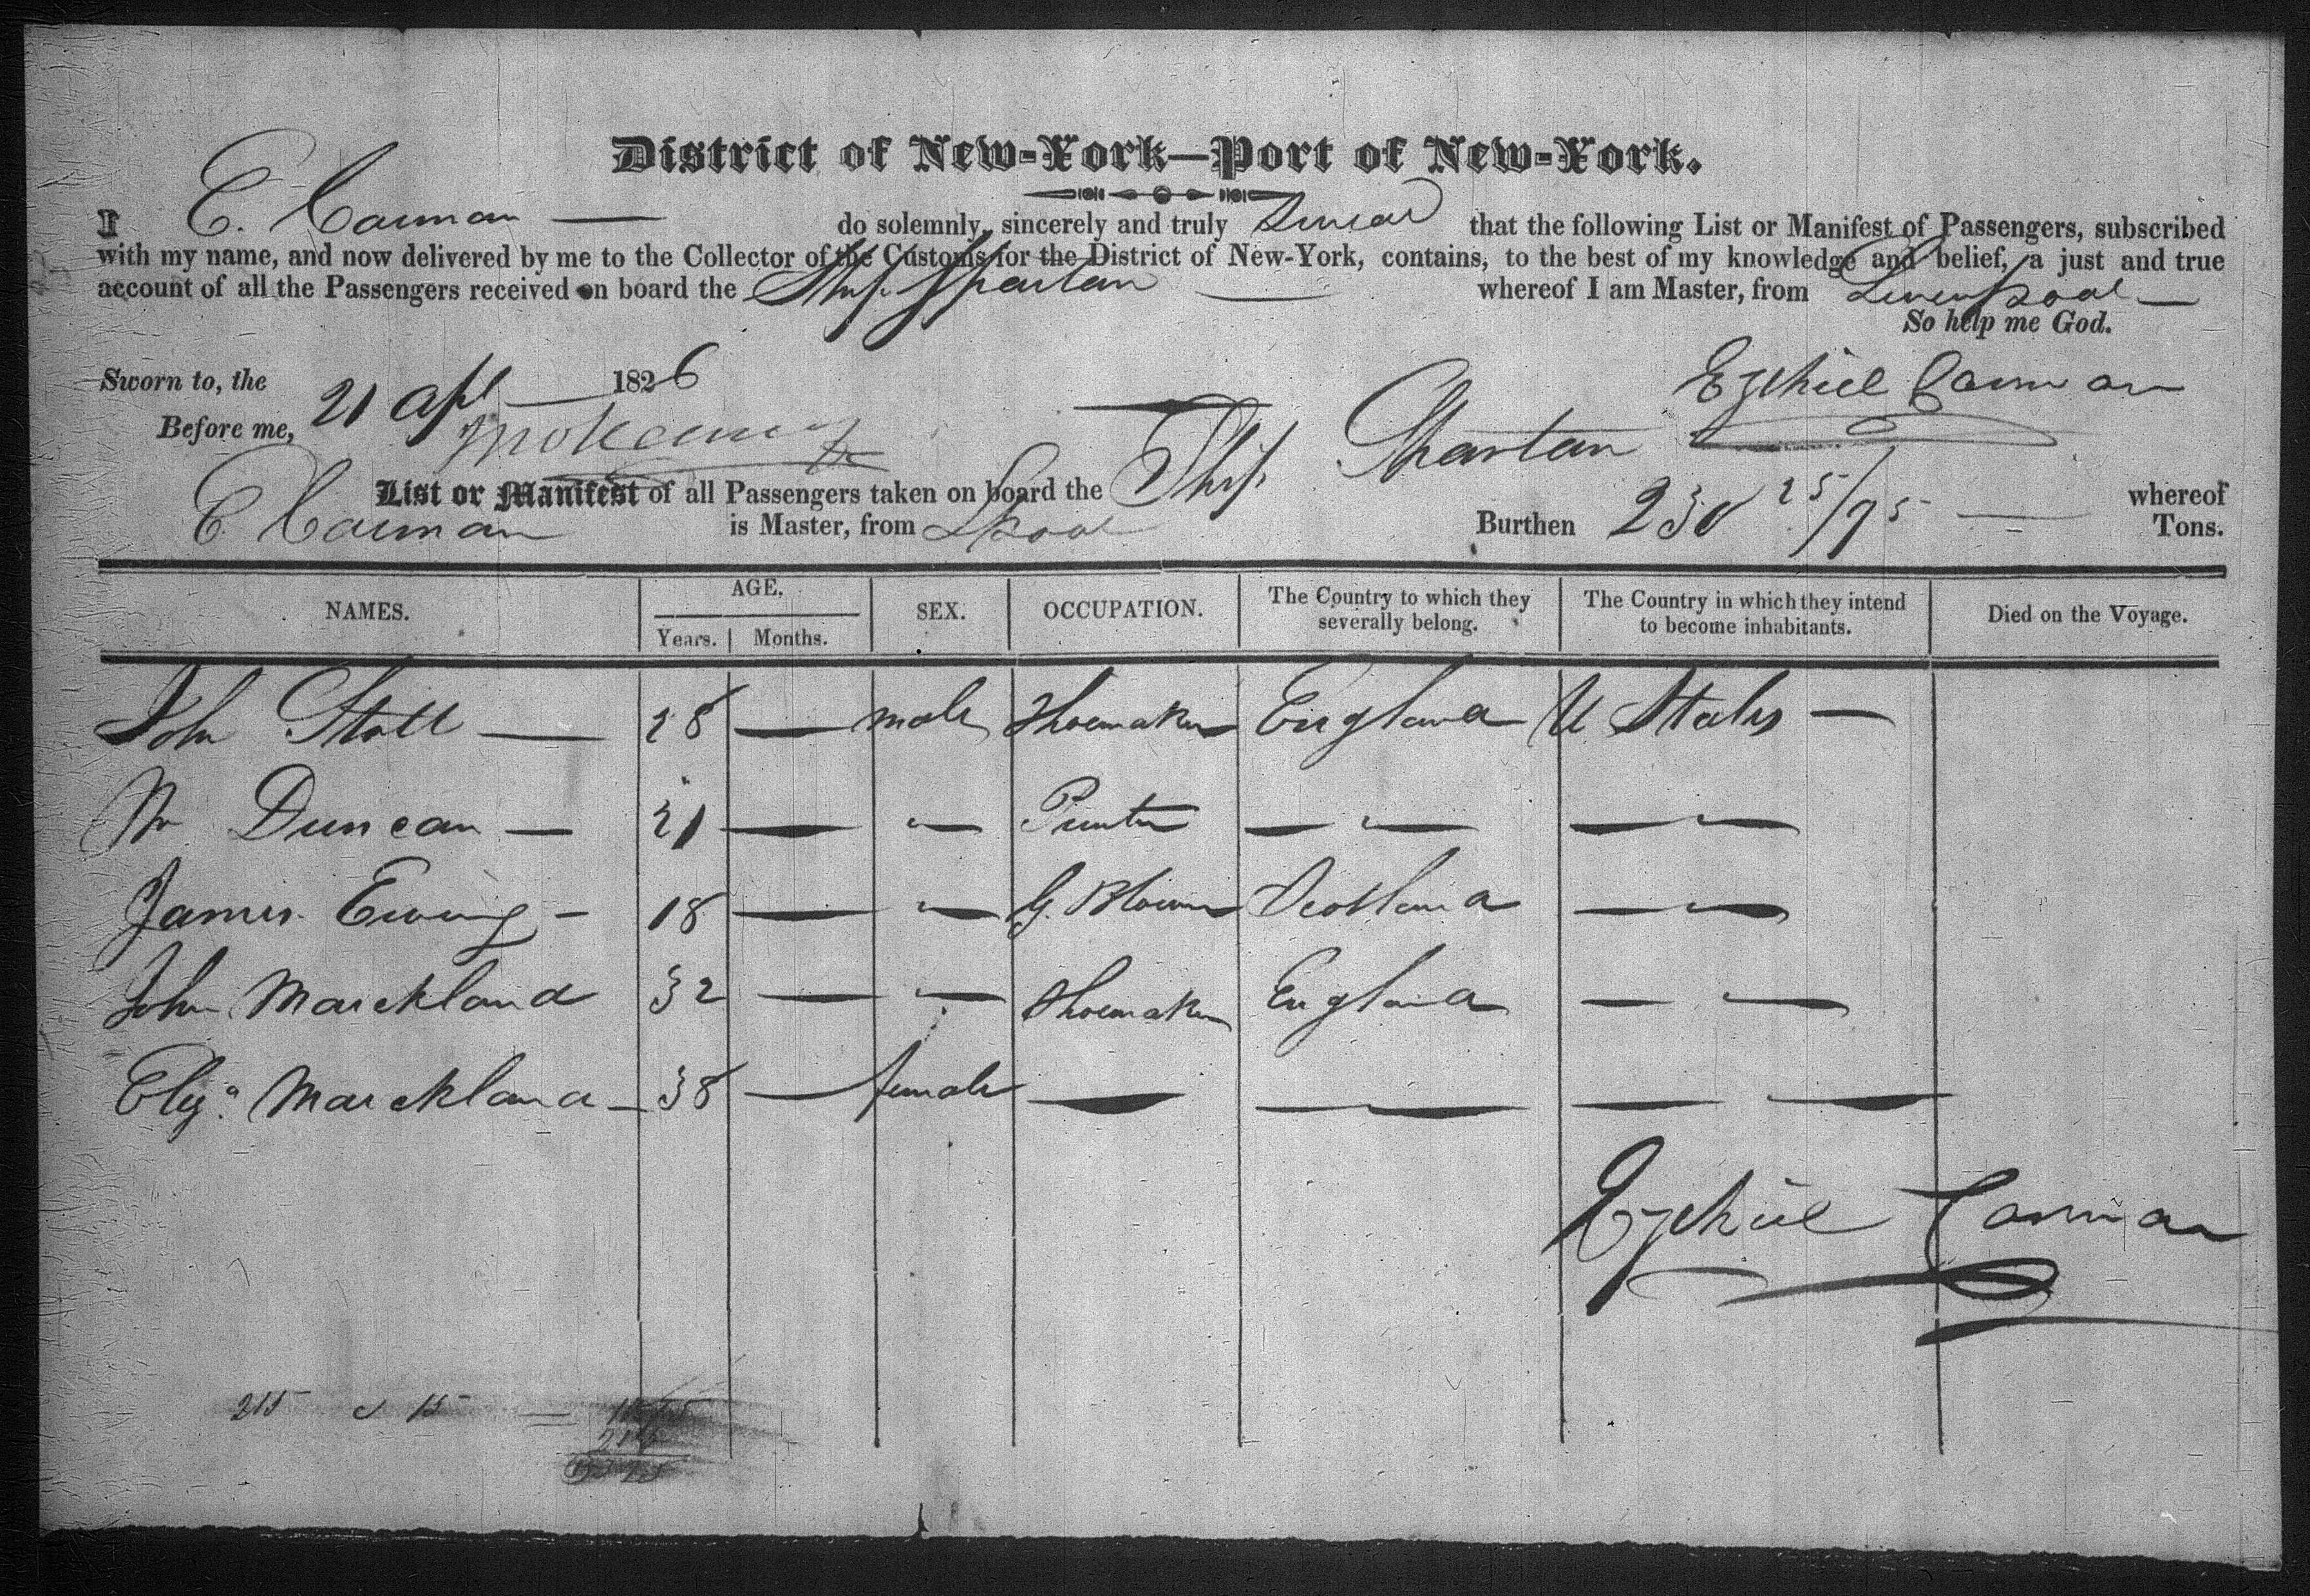 District of New-York—Port of New-York.
I E. Carman — do solemnly, sincerely and truly Swear that the following List or Manifest of Passengers, subscribed
with my name, and now delivered by me to the Collector of the Customs for the District of New-York, contains, to the best of my knowledge and belief, a just and true
account of all the Passengers received on board the Ship Spartan — whereof I am Master, from Liverpool —
So help me God.
Sworn to, the 21 Apl — 1826
Before me,
Ezekiel Carman
List or Manifest of all Passengers taken on board the Ship Spartan whereof
E Carman is Master, from Lpool Burthen 25/95 — Tons.
NAMES. AGE, SEX. OCCUPATION. The Country to which they severally belong. The Country in which they intend to become inhabitants. Died on the Voyage.
Years. Months.
John Stott — 28 — male Shoemaker England U States —
Wm Duncan — 21 — " — — " — — " —
James Ewing — 18 — " — G. Blower Scotland — " —
John Marckland 32 — " — Shoemaker England — " —
Eliza Marckland — 38 — female — — — — —
Ezekiel Carman
215 15 =